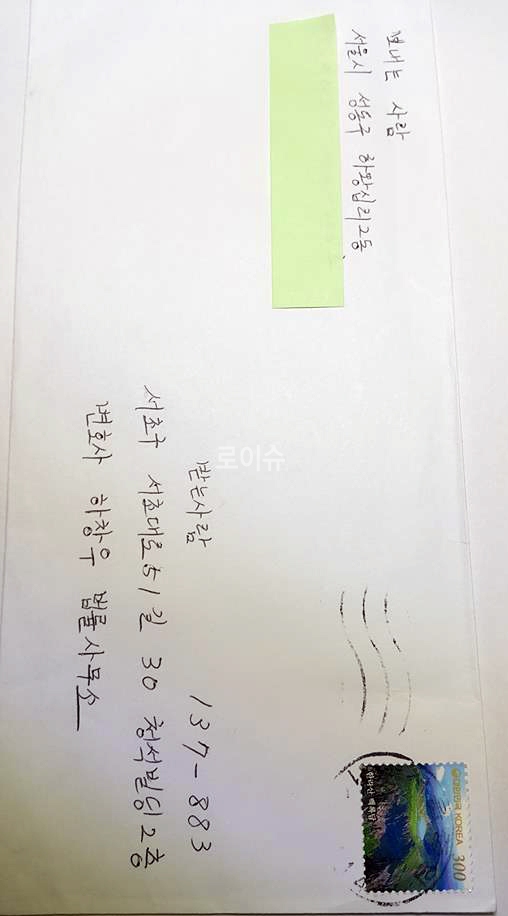 보내는 사람
서울시 성동구 하왕십리2동
받는사람 137-883
서초구 서초대로51길 30 청석빌딩2층
변호사 하창우 법률사무소
대한민국 KOREA 300
한라산 백록담
로이슈